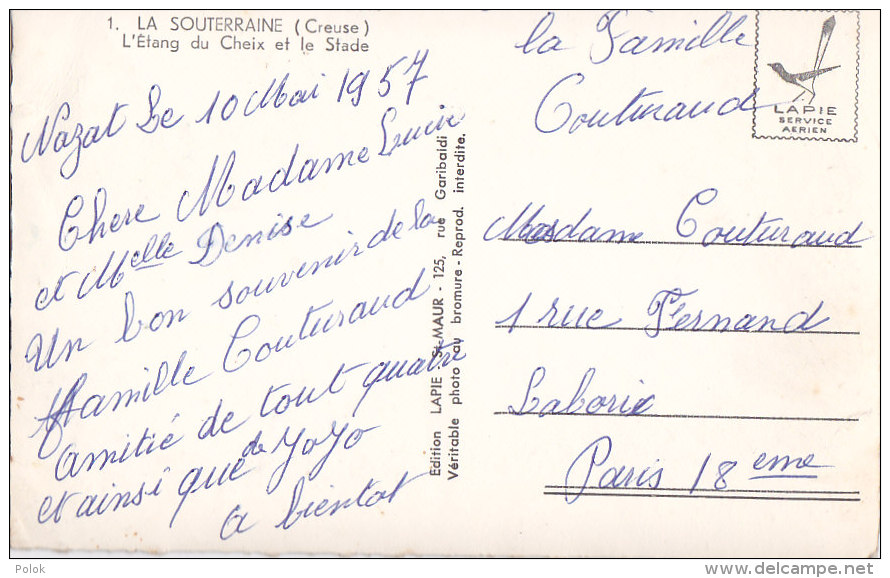 1. LA SOUTERRAINE (Creuse)
L'Étang du Cheix et le Stade
Nazat Le 10 Mai 1957
Chere Madame Lucie
et Melle Denise
Un bon souvenir de la
famille Couturaud
amitié de tout quatre
et ainsi que de YoYo
a bientot
la Famille
Couturaud
LAPIE
SERVICE
AERIEN
Edition LAPIE, St-MAUR - 125, rue Garibaldi
Véritable photo au bromure - Reprod. interdite.
Madame Couturaud
1 rue Fernand
Laborie
Paris 18 eme
Polok
http://www.delcampe.net